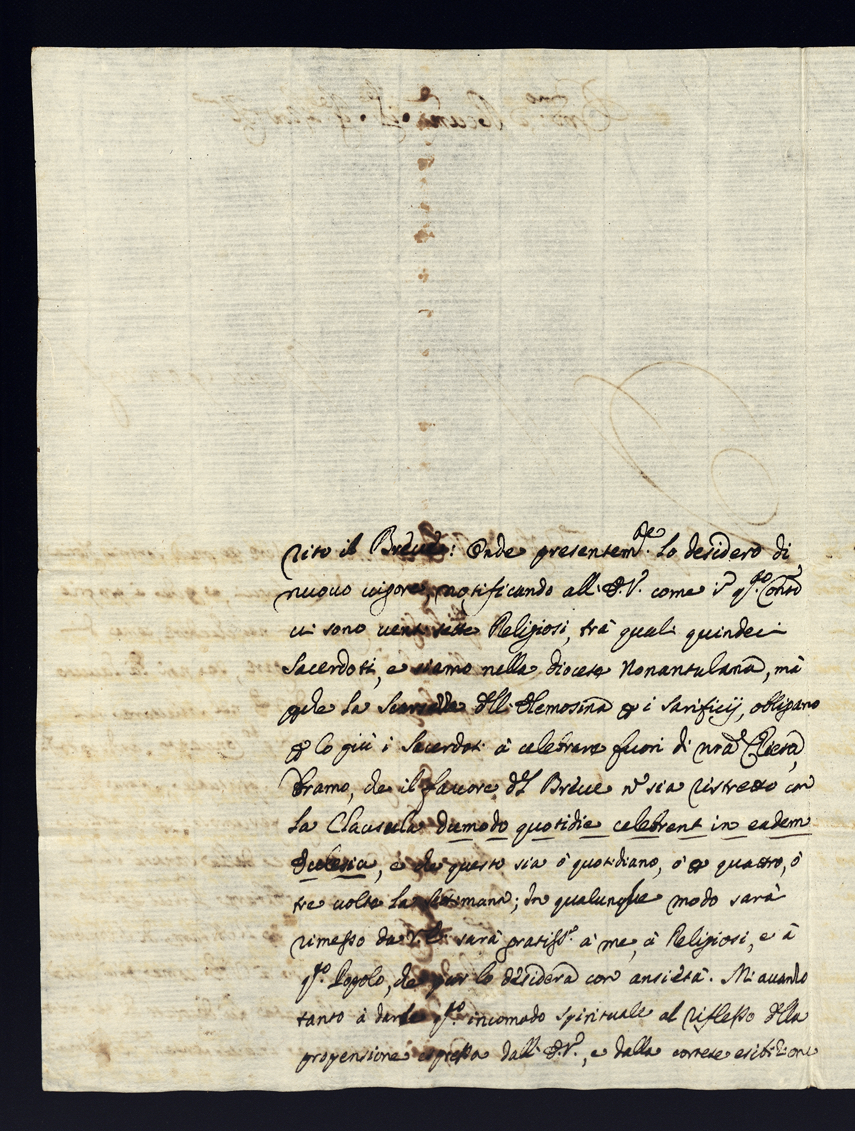 rito il Breve: Onde presentemte. Lo desidero di
nuovo vigore, notificando all'E.V. come in qto. Conto
ci sono venti sette Religiosi, trà quali quindeci
Sacerdoti, e siamo nella diocese Nonantulana, mà
che la dell' Elemosina p i sacrificij, obligano
p lo più i Sacerdoti à celebrare fuori di nra Chiesa,
bramo, che il favore del Breve nō sia ristretto con
la Clausula dumodo quotidie celebrent in eadem
Ecclesia, e che questo sia ò quotidiano, ò p quattro, ò
tre volte la settimana; In qualunque modo sarà
rimesso da V.E. sarà gratiss.o à me, à Religiosi, e à
qto. Popolo, che pur lo desidera con ansietà. Mi avanzo
tanto à darle qto. incomodo spirituale al riflesso della
propensione espressa dall'E.V., e dalla cortese esibizione